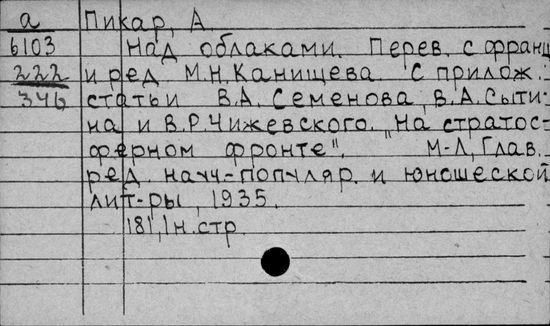 а Пикар, А
6103 Над облаками. Перев. с франц
222 и ред М.Н.Канищева. С прилож.
346 статьи В.А. Семенова, В.А.Сыти-
на и В.Р.Чижевского. „На стратос-
ферном фронте". М-Л, Глав.
ред. научч-популяр. и юношеской
лит-ры, 1935.
181, 1н.стр.